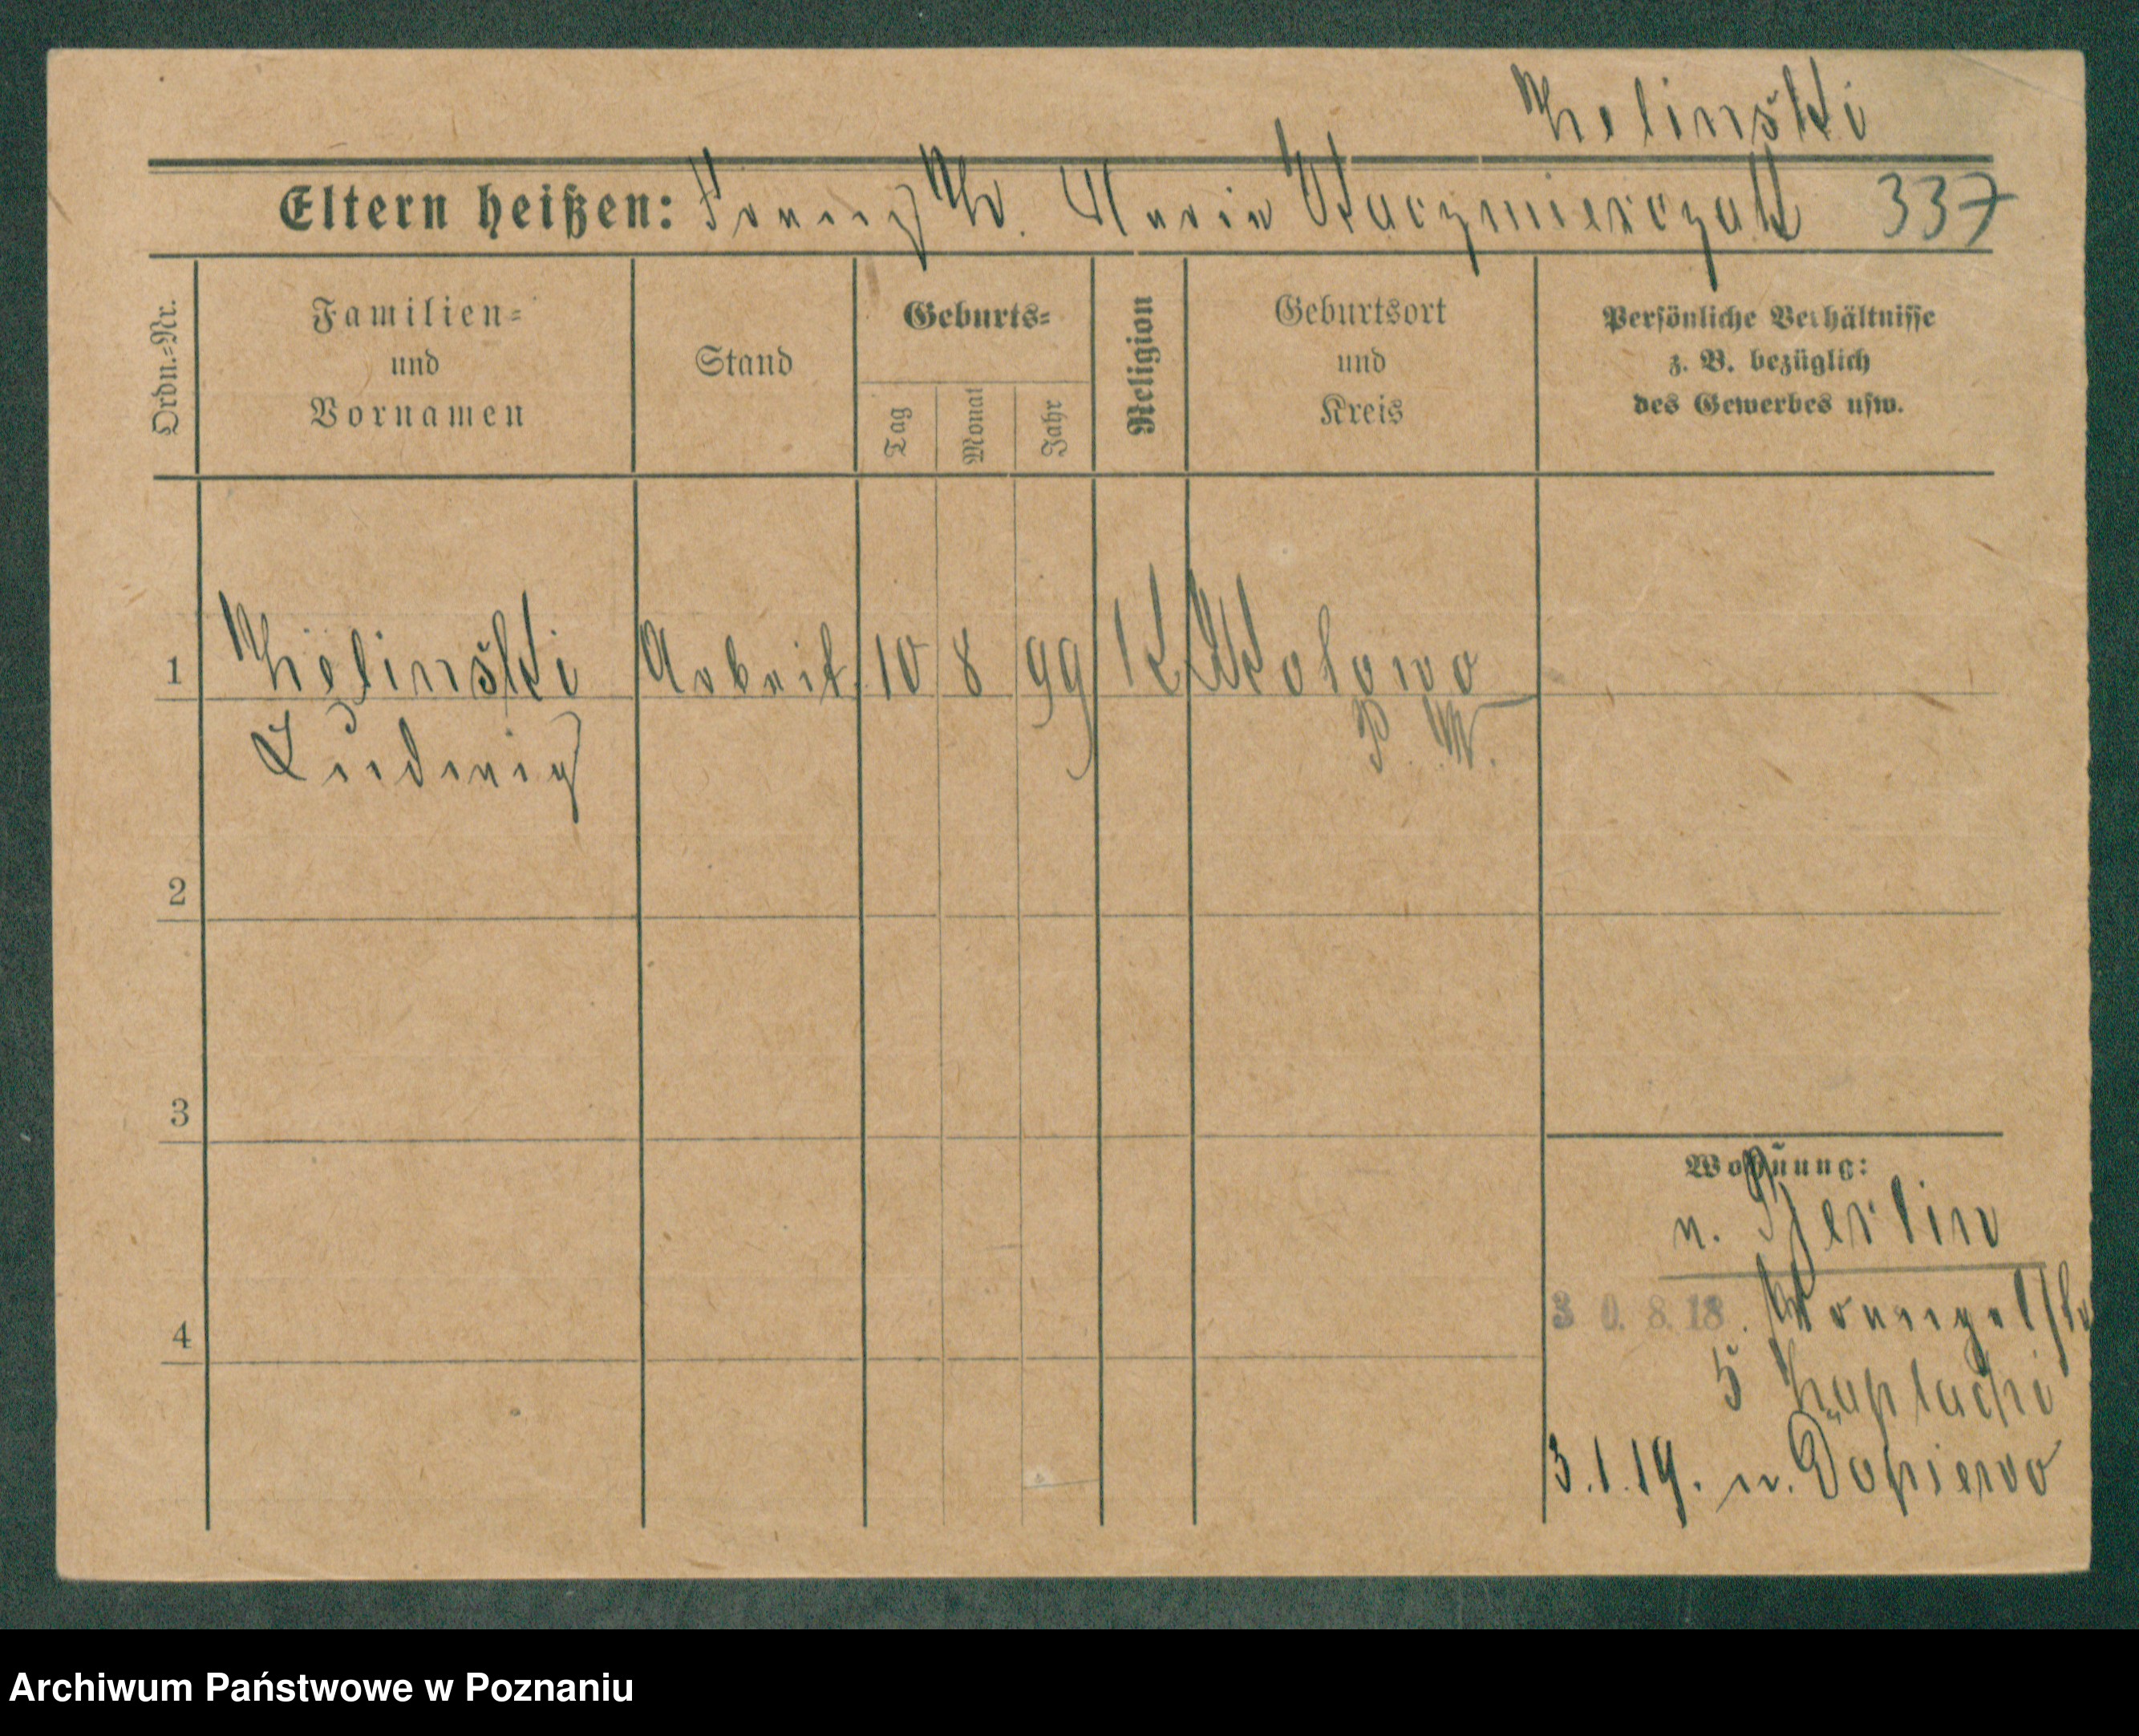 Zielinski
Eltern heißen: Franz Z. Maria Kaczmierczak 337
Ordn.=Nr.
Familien=
und
Vornamen
Stand
Geburts=
Tag
Monat
Jahr
Religion
Geburtsort
und
Kreis
Persönliche Verhältnisse
z. B. bezüglich
des Gewerbes usw.
1 Zielinski Arbeit. 10 8 99 K
Ludwig P. W.
2
3
4
Wohnung:
n. Berlin
30.8.18.
5
3.1.19. n. Dopiewo
Archiwum Państwowe w Poznaniu